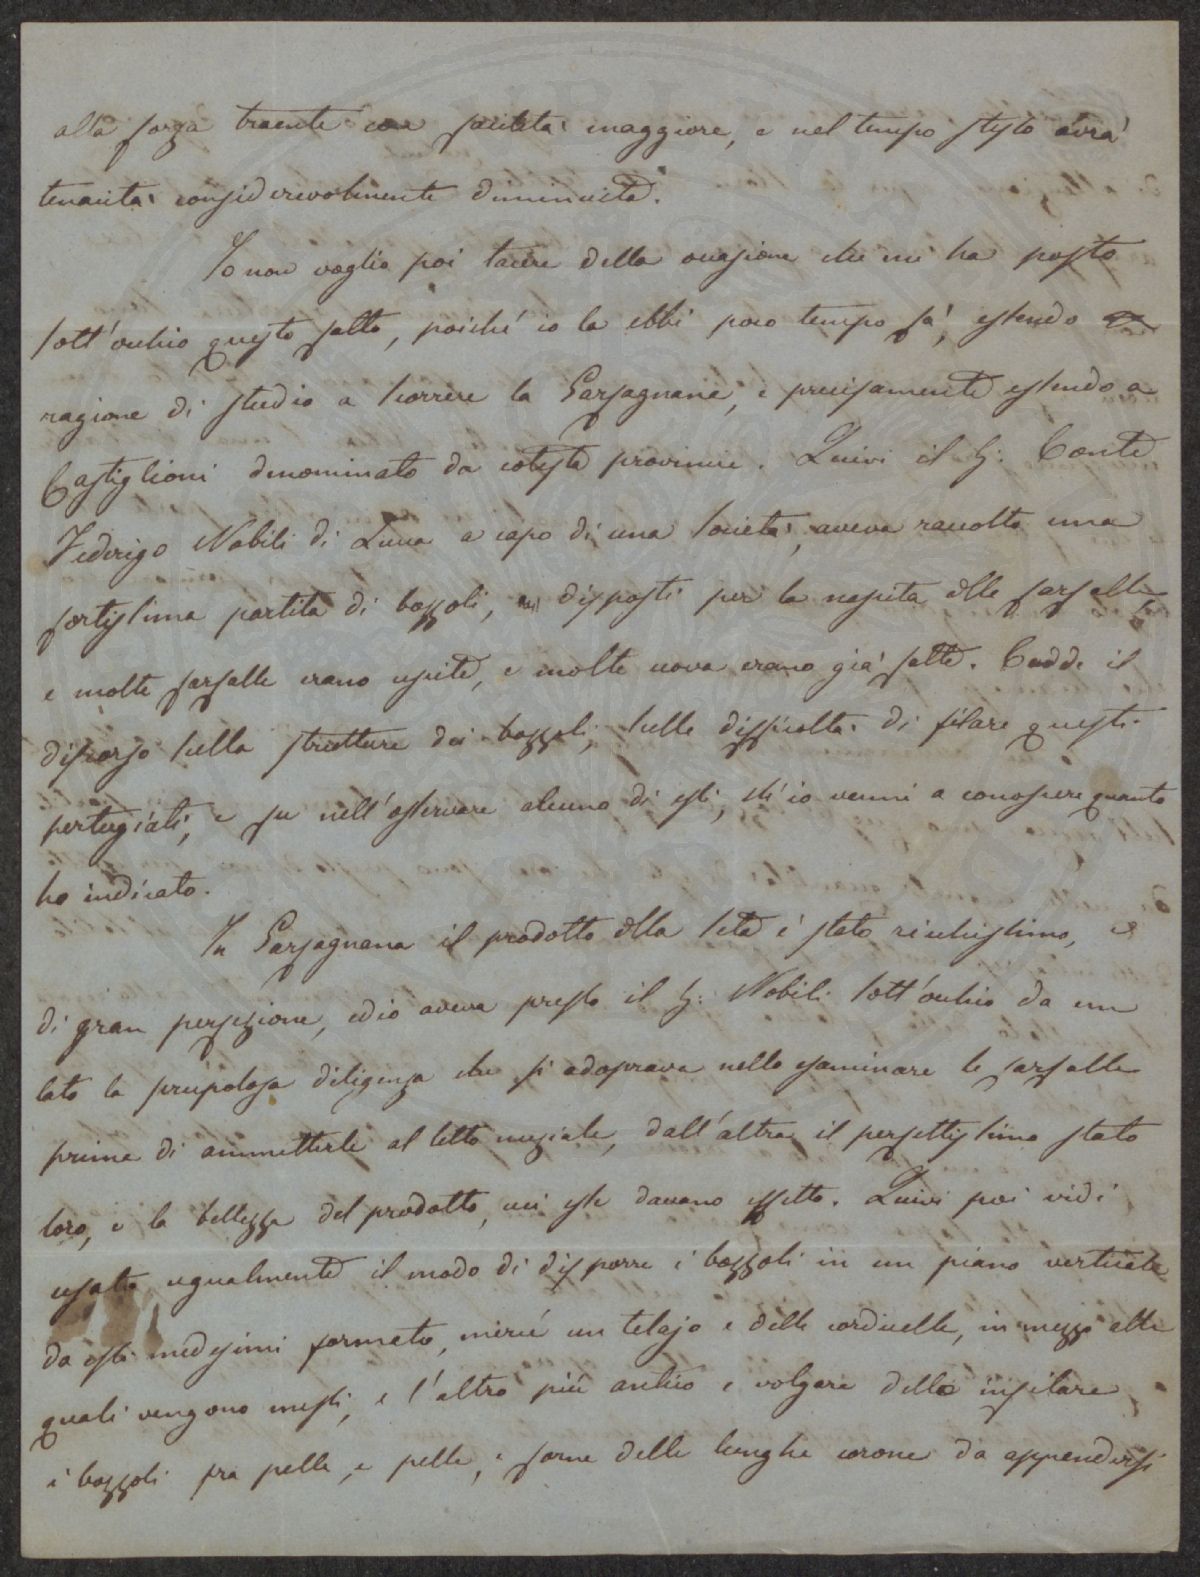 alla forza traente con facilità maggiore, e nel tempo stesso avrà
tenacità considerevolmente diminuita.
Io non voglio poi tacere della occasione che mi ha posto
sott'occhio questo fatto, poiché io la ebbi poco tempo fà, essendo
ragione di studio a scorrere la Garfagnana, e precisamente essendo a
Castiglioni denominato da coteste provincie. Quivi il S: Conte
Federigo Nobili di Lucca a capo di una società, aveva raccolta una
fortissima partita di bozzoli, disposti per la nascita delle farfalle
e molte farfalle erano uscite, e molte uova erano già fatte. Cadde il
discorso sulla struttura dei bozzoli, sulle difficoltà di filare questi
pertugiati, e fu nell'osservare alcuno di essi, ch'io venni a conoscere quanto
ho indicato.
In Garfagnana il prodotto della seta è stato ricchissimo, e
di gran perfezione, ed io aveva presso il S: Nobili sott'occhio da un
lato la scrupolosa diligenza che si adoprava nello esaminare le farfalle
prima di ammetterle al letto nuziale, dall'altra il perfettissimo stato
loro, e la bellezza del prodotto, cui esse davano effetto. Quivi poi vidi
usato ugualmente il modo di disporre i bozzoli in un piano verticale
da essi medesimi formato, mercé un telajo e delle cordicelle, in mezzo alle
quali vengono messi, e l'altro più antico e volgare dello infilare
i bozzoli fra pelle, e pelle, e farne delle lunghe corone da appendersi